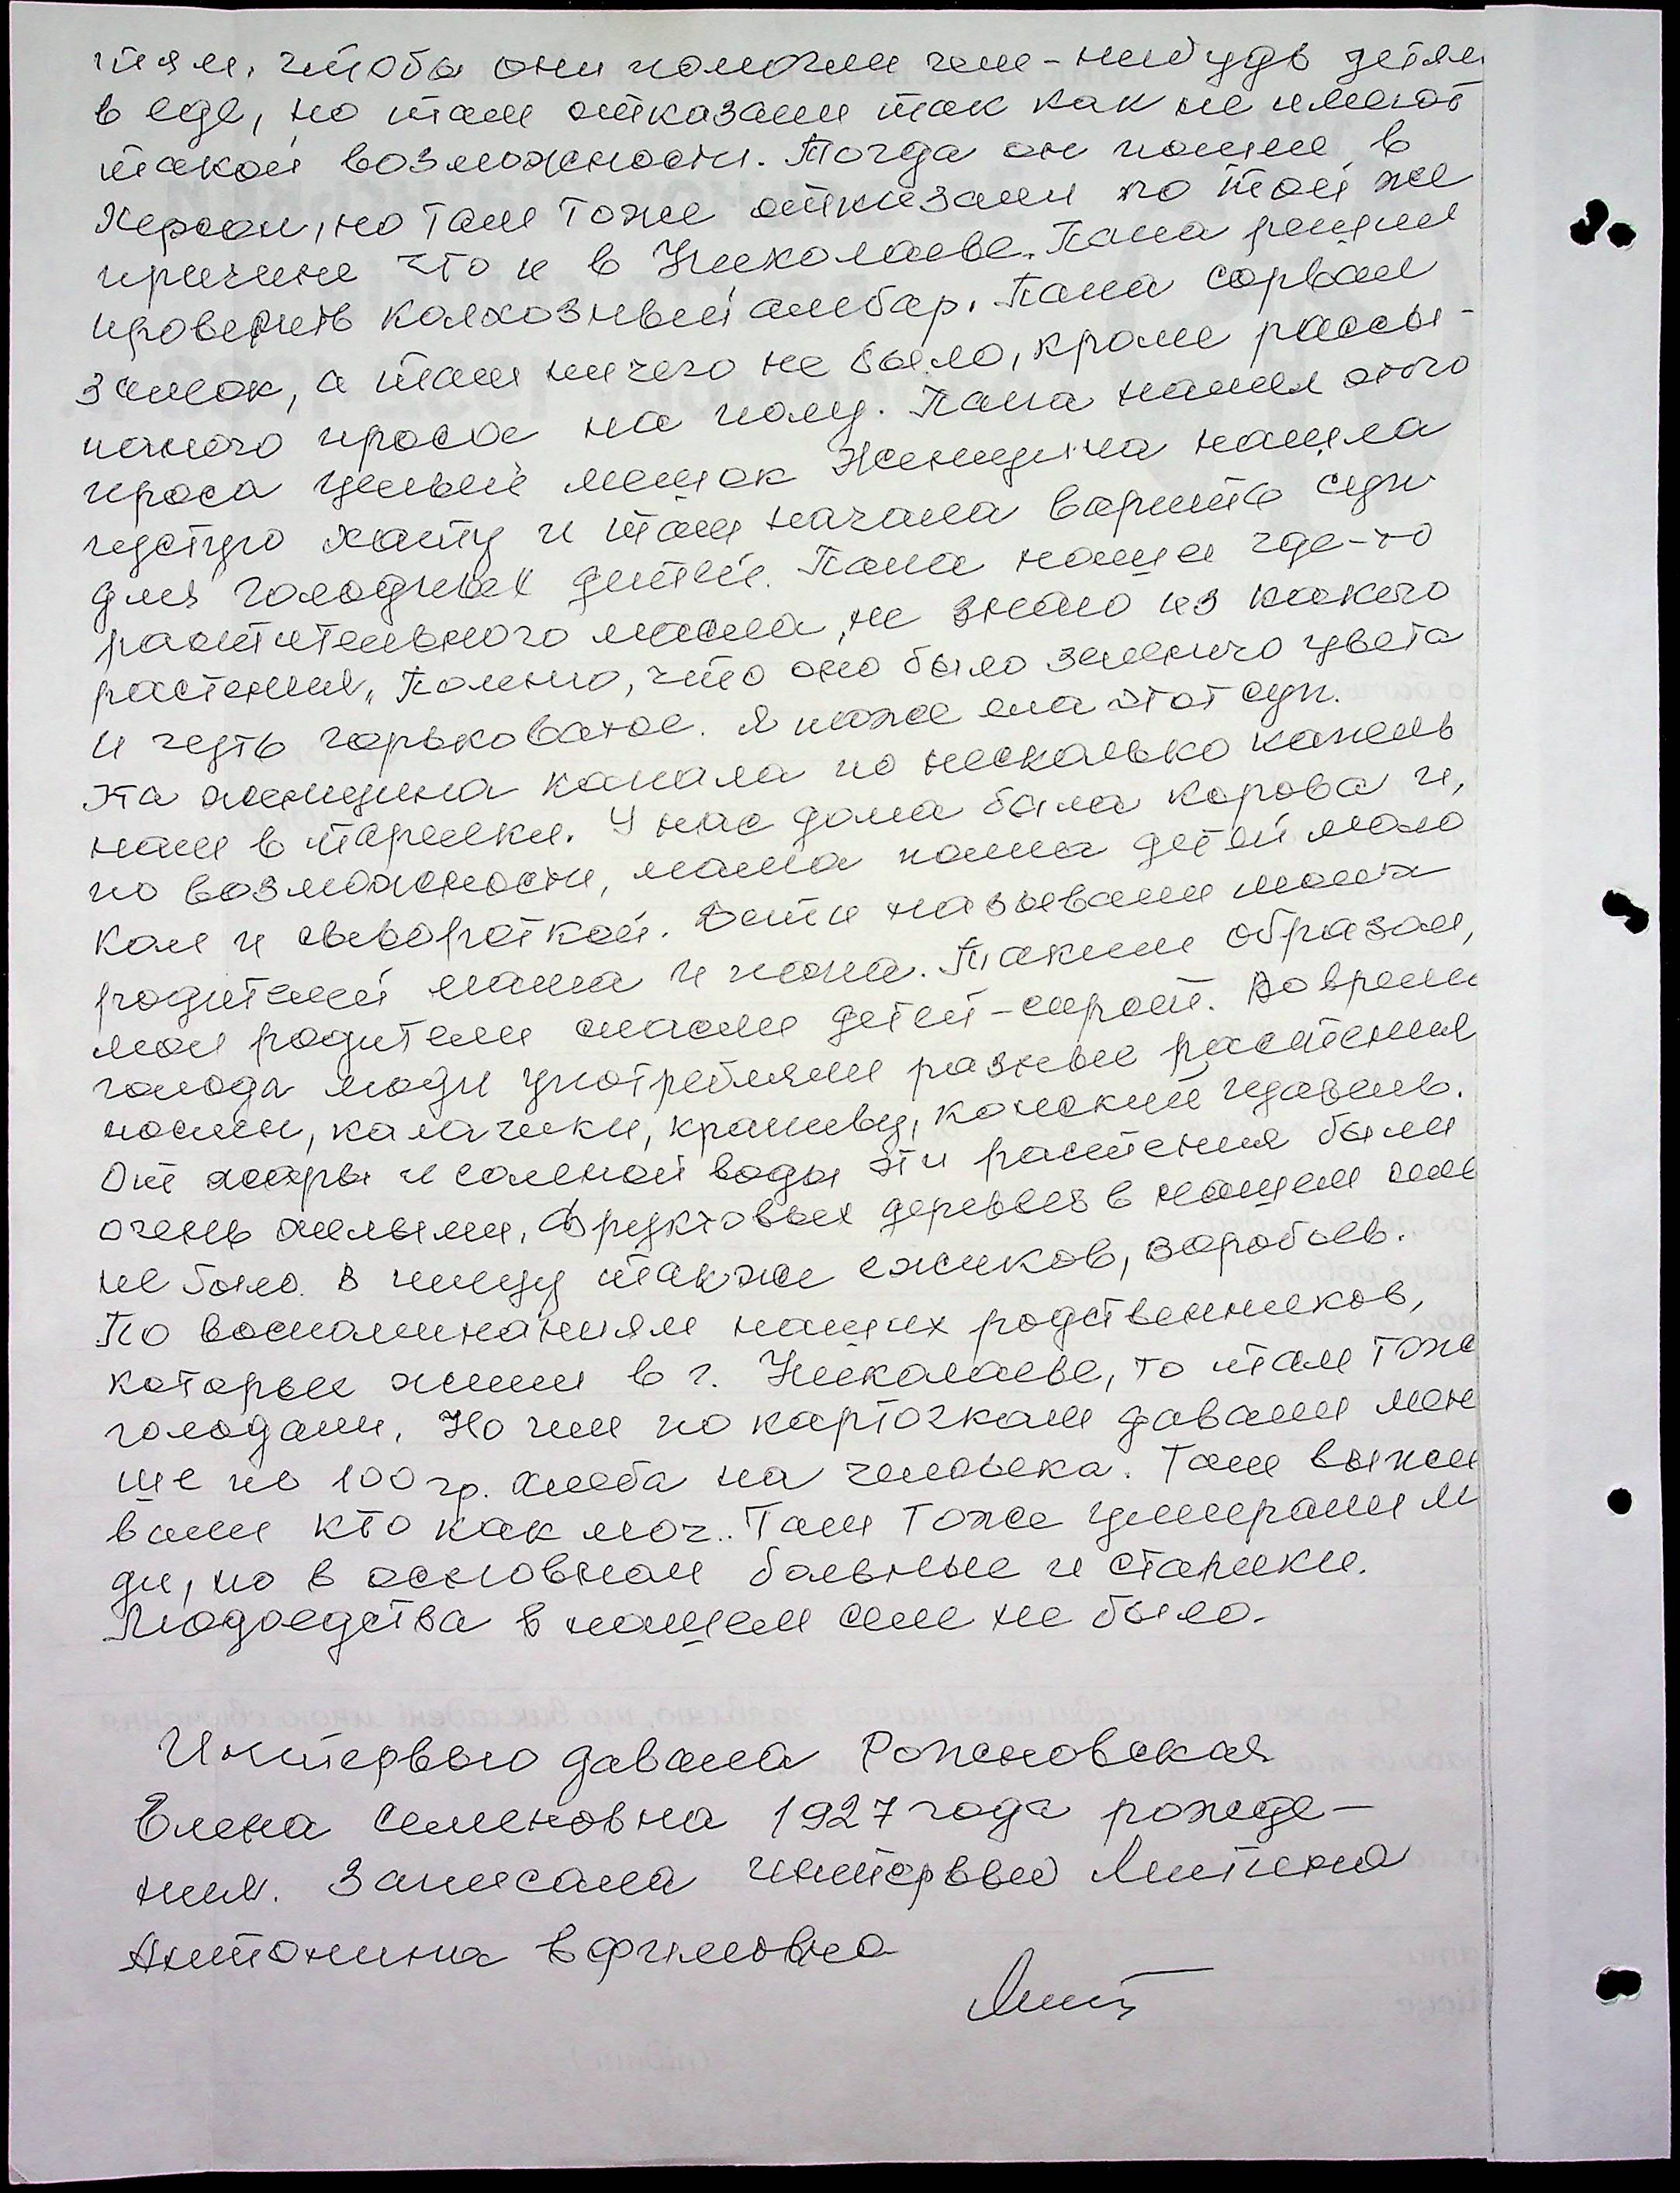 тям, чтобы они помогли чем-нибудь детям
в еде, но там отказали так как не имеют
такой возможности. Тогда он пошел в
Херсон, но там тоже отказали по той же
причине что и в Николаеве. Папа решил
проверить колхозный амбар. Папа сорвал
замок, а там ничего не было, кроме рассы-
паного проса на полу. Папа нашел этого
проса целый мешок Женщина нашла
пустую хату и там начала варить суп
для голодных детей. Папа нашел где-то
растительного масла, не знаю из какого
растения, Помню, что оно было зеленого цвета
и чуть горьковатое. Я тоже ела этот суп.
Эта женщина капала по несколько капель
нам в тарелки. У нас дома была корова и,
по возможности, мама поила детей моло
ком и сывороткой. Дети называли моих
родителей мама и папа. Таким образом,
мои родители спасли детей-сирот. Во время
голода люди употребляли разные растения
паслен, калачики, крапиву, конский щавель.
От жары и соленой воды эти растения были
очень жилыми. Фруктовых деревьев в нашем селе
не было. В пищу также ежиков, воробьев.
По воспоминаниям наших родственников,
которые жили в г. Николаеве, то там тоже
голодали, Но им по карточкам давали мень
ше по 100 гр. хлеба на человека. Там выжи
вали кто как мог.. Там тоже умерали лю
ди, но в основном больные и старики.
Людоедства в нашем селе не было.
Интервью давала Рожновская
Елена Семеновна 1927 года рожде-
ния. Записала интервью Литина
Антонина Ефимовна